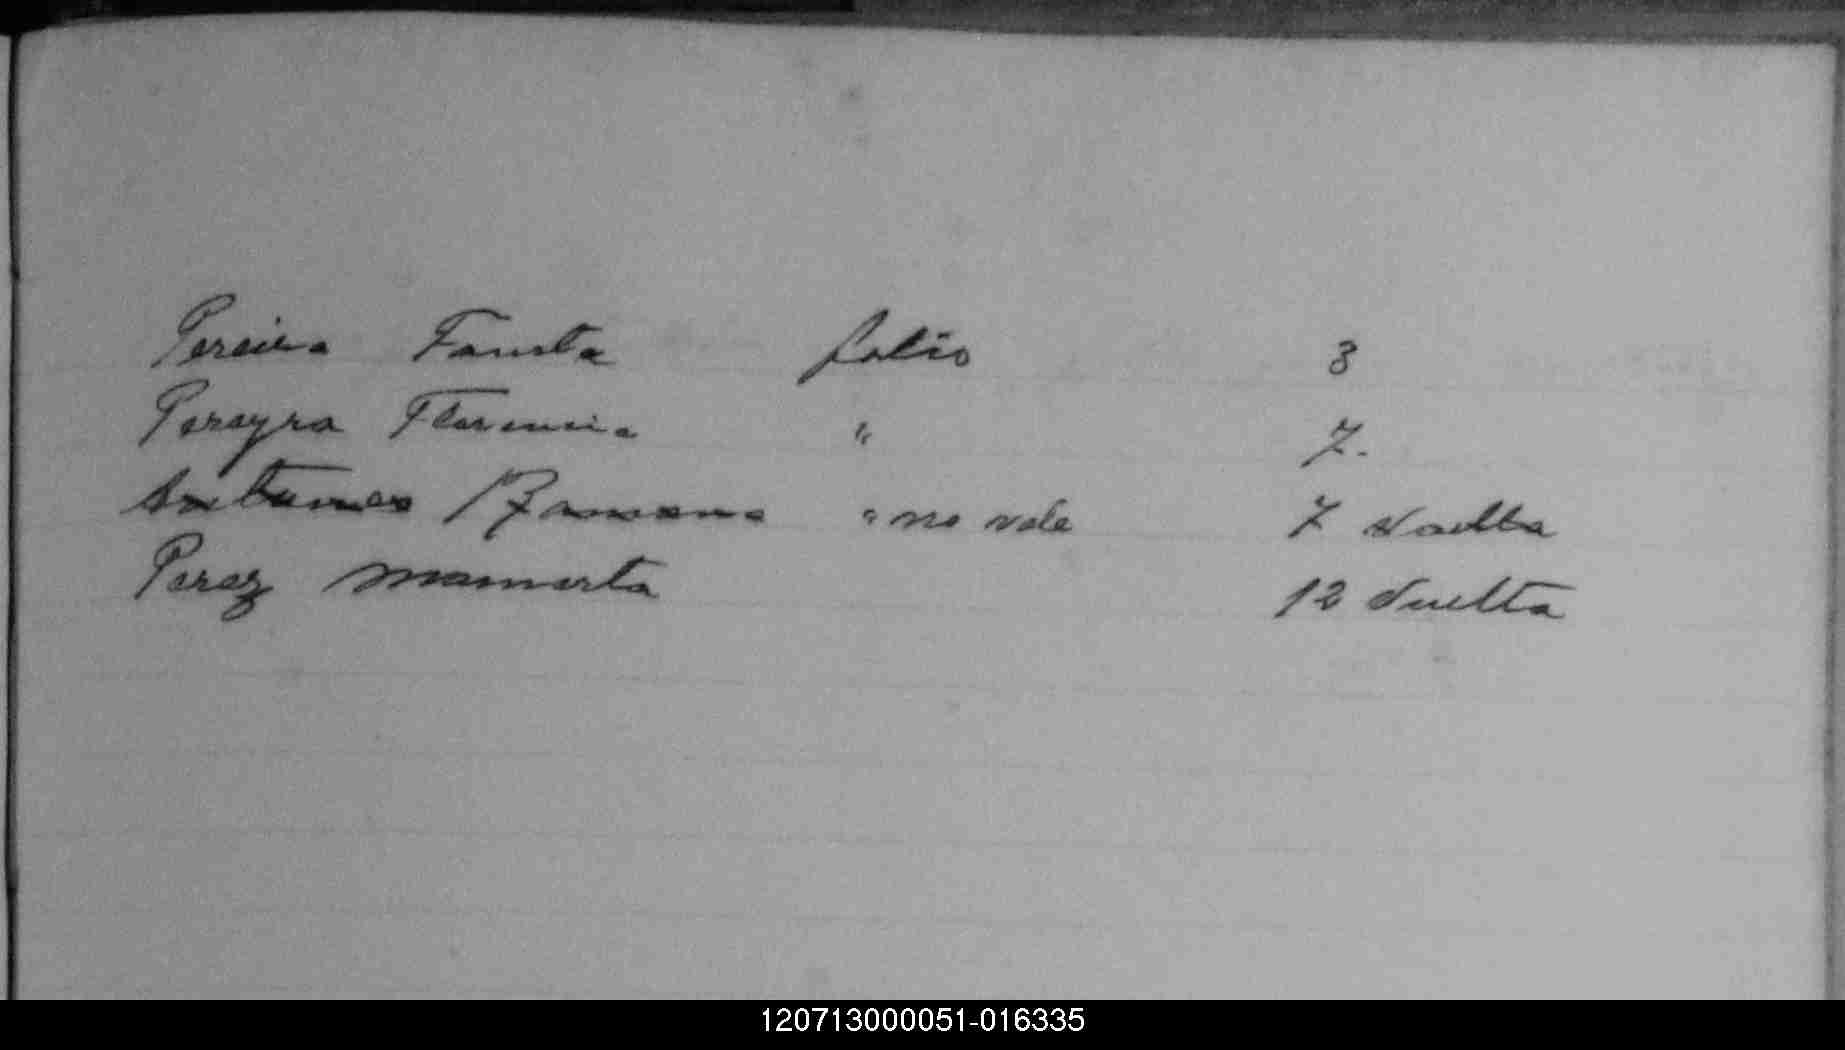 Pereira Fausta folio 3
Pereyra Florencia " 7.
Antunes Ramona " no vale 7 Vuelta
Perez Mamerta 12 Vuelta
120713000051-016335